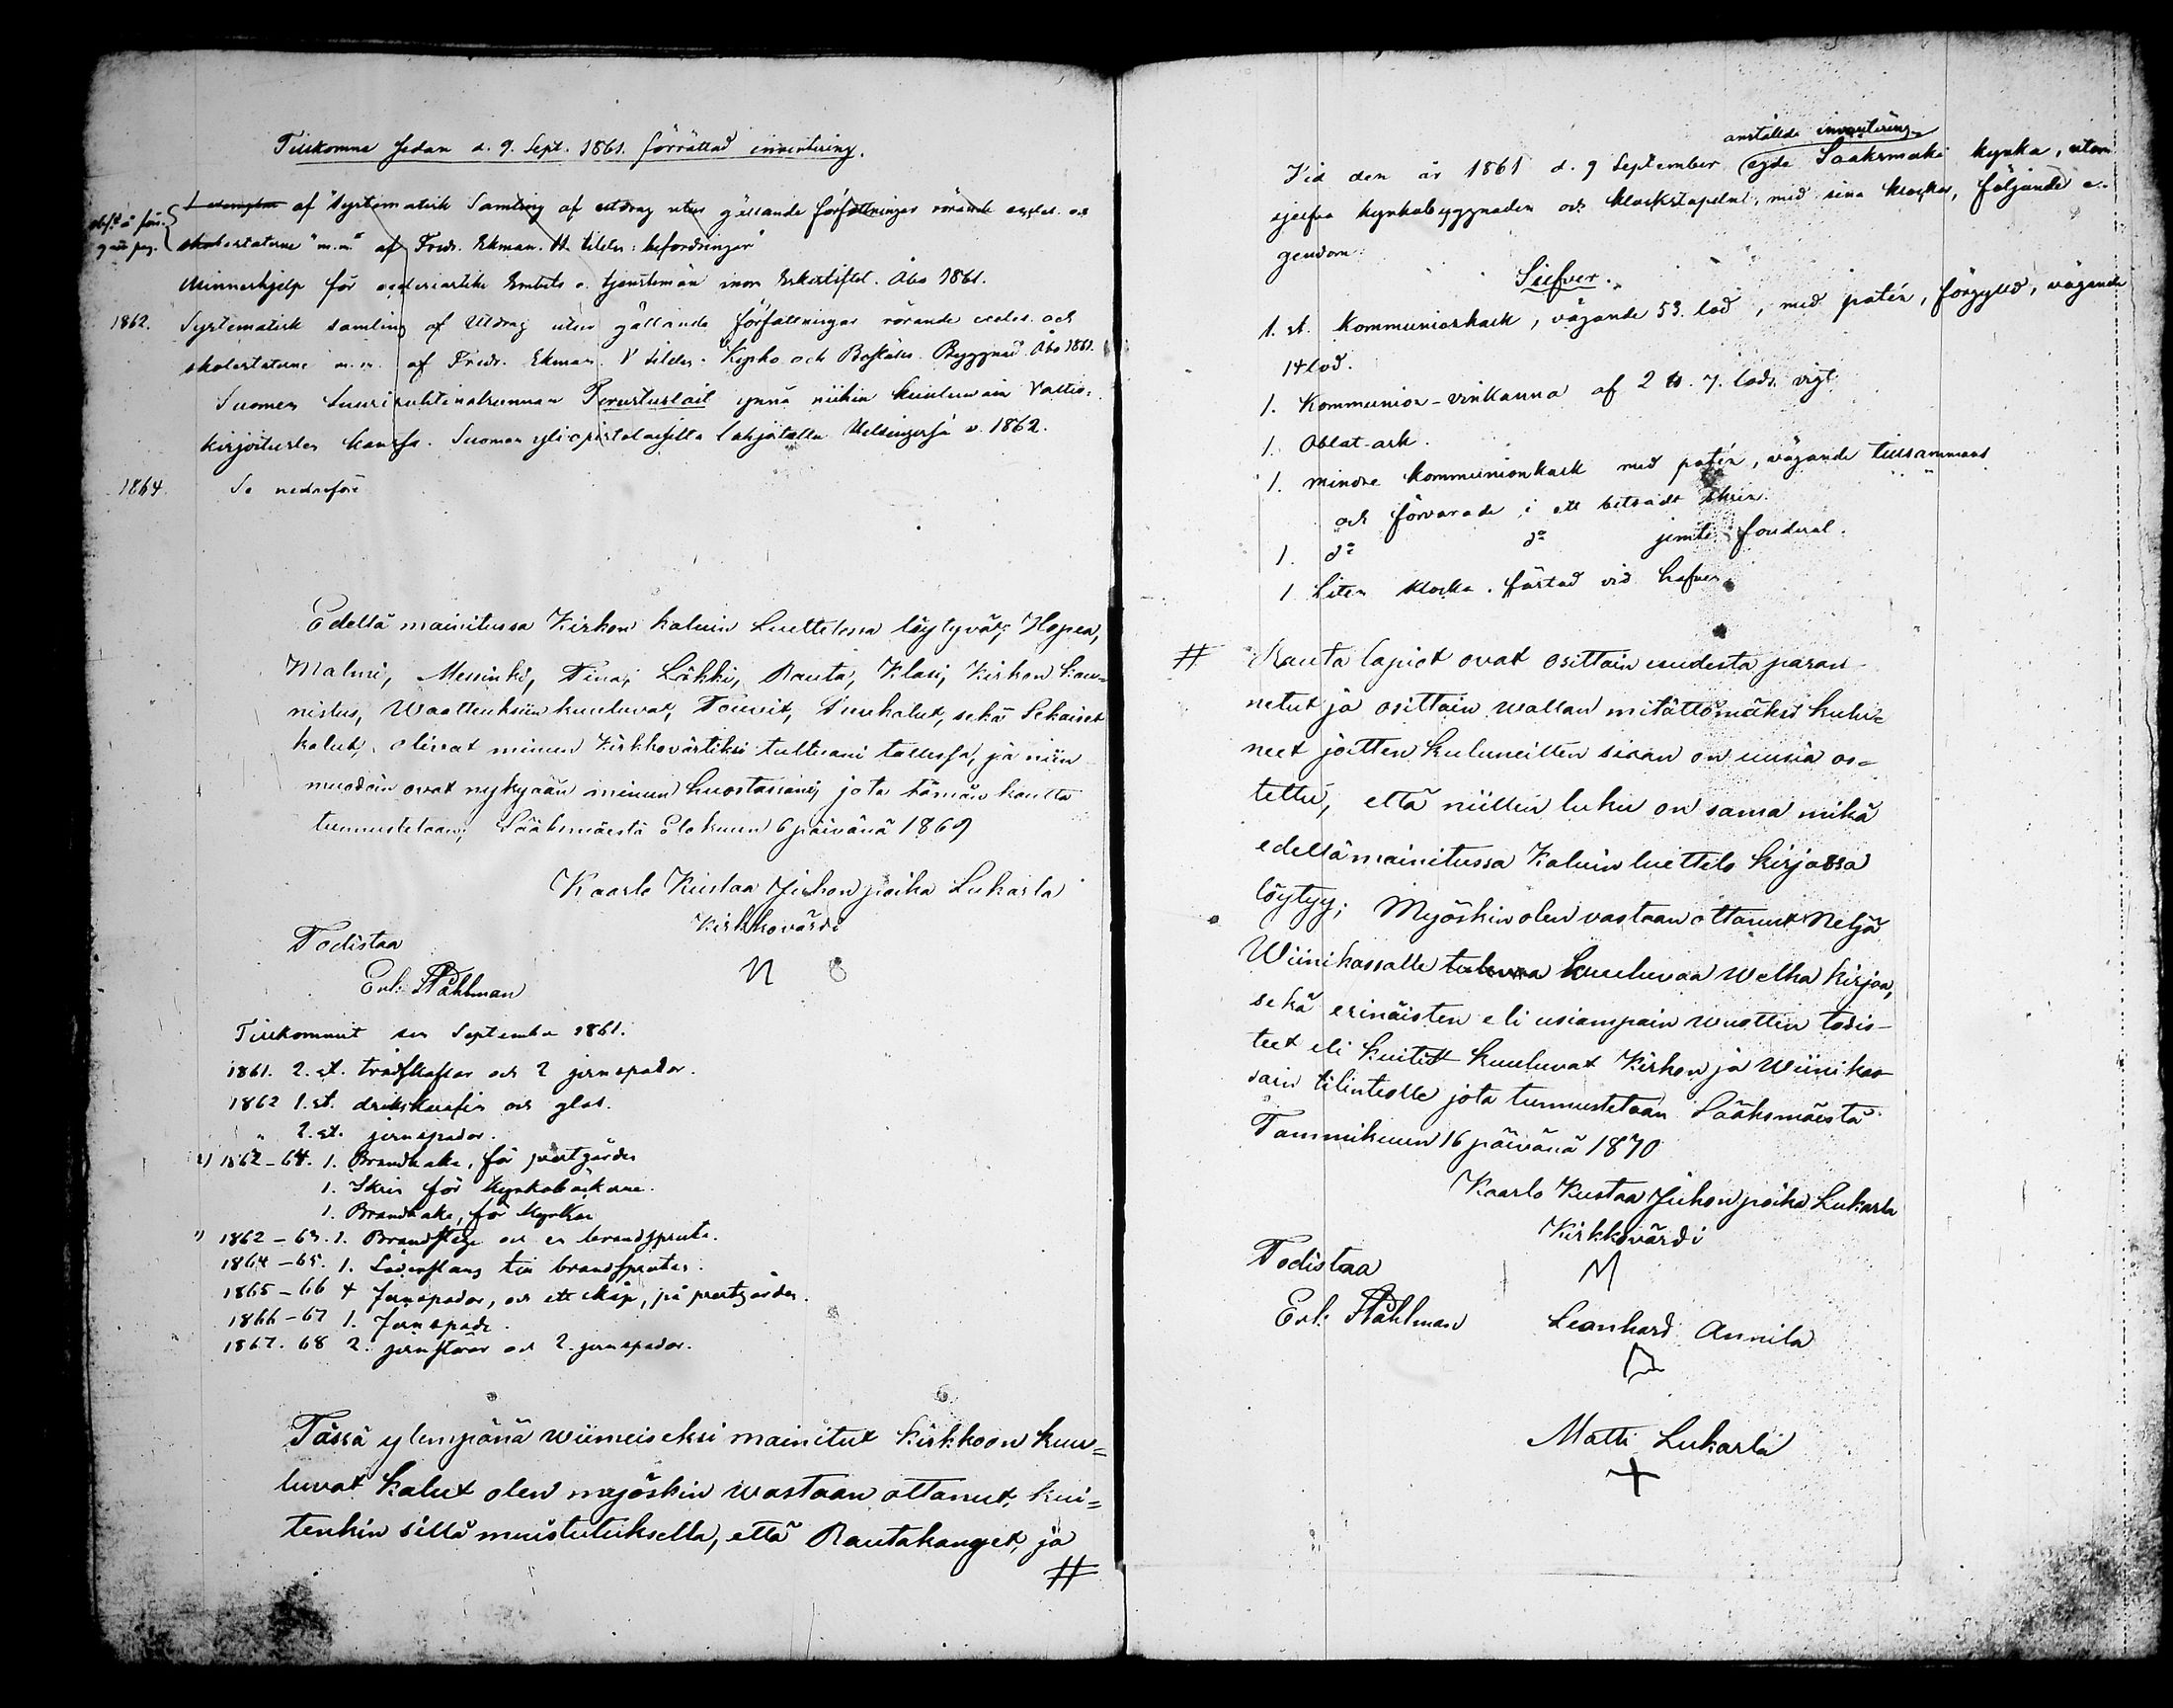 Tillkomne sedan d. 9. Sept. 1861. förrättad inventering.
1 exemplar af "Systematisk Samling af utdrag utur gällande författningar rörande eccles. och
skolestaterne" m.m." af Fredr. Ekman. II delen: befordringar"
Minneshjelp för ecclesiastike Embets o. tjenstemän inom Erkestiftet. Åbo 1861.
1862. Systematisk samling af Utdrag utur gällande författningar rörande eccles. och
skolestaterne m.m. af Fredr. Ekman. V delen. Kyrko och Boställs Byggnad. Åbo 1861.
Suomen Suuriruhtinakunnan Perustuslait ynnä niihin kuuluwain Valtio-
kirjoitusten kanssa. Suomen yliopistolaisilta lahjoitettu Helsingissä v. 1862.
1864. Se nedanföre
Edellä mainitussa Kirkon kaluin Luettelossa löytyvät; Hopea,
Malmi, Messinki, Tina, Läkki, Rauta, Klasi, Kirkon kau=
nistus, Waatteuksiin kuuluvat, Pouvit, Puukalut, sekä Sekaiset
kalut, olivat minun Kirkkovärtiksi tultuani tallessa, ja niin
muodoin ovat nykyään minun huostassani, jota tämän kautta
tunnustetaan; Sääksmäestä Elokuun 6 päivänä 1869
Kaarlo Kustaa Juhonpoika Lukarla
Kirkkovärdi
Todistaa
Erl: Påhlman
Tillkommit sen September 1861.
1861. 2. st. trädskaflar och 2 jernspador.
1862 1. st. drickskaraffin och glas.
" 2. st. jernspador.
2) 1862-64. 1. Brandhake, för prestgården
1. Skrin för Kyrkoböckerne.
1. Brandhake, för Kyrkan
1) 1862-63. 1. Brandstege och en brandspruta.
1864-65. 1. Läderslang till brandsprutan.
1865-66 4 Jernspador, och ett skåp, på prestgården.
1866-67 1. Jernspade.
1867. 68 2. jernstörar och 2. jernspador.
Tässä ylempänä wiimeiseksi mainitut Kirkkoon kuu=
luvat Kalut olen myöskin wastaan ottanut, kui=
tenkin sillä muistutuksella, että Rautakanget, ja
#
anställda inventering
Vid den år 1861 d. 9 September egde Sääksmäki kyrka, utom
sjelfva kyrkobyggnaden och klockstapeln, med sina klockor, följande e-
gendom:
Silfver.
1. st. Kommunionkalk, vägande 53. lod, med patén, förgylld, vägande
14 lod.
1. Kommunion-vinkanna af 2 ℔. 7. lods vigt
1. Oblat-ask.
1. mindre kommunionkalk med patén, vägande tillsammans
och förvarade i ett skrin.
1. d:o d:o jemte fouderal.
1 Liten klocka, fästad vid hafven.
# Rauta lapiot ovat osittain uudesta paran
netut ja osittain wallan mitättömäksi kulu=
neet joitten kuluneitten siaan on uusia os=
tettu, että niitten luku on sama mikä
edellämainitussa Kaluin luettelo kirjassa
löytyy; Myöskin olen vastaan ottanut Neljä
Wiinikassalle kuuluvaa Welka kirjaa,
sekä erinäisten eli usiampain wuotten todis-
teet eli Kuitit kuuluvat Kirkon ja Wiini kas
sain tilinteolle jota tunnustetaan Sääksmäestä
Tammikuun 16 päivänä 1870
Kaarlo Kustaa Juhonpoika Lukarla
Kirkkovärdi
Todistaa
Erl: Påhlman Leonhard Annila
Matti Lukarla